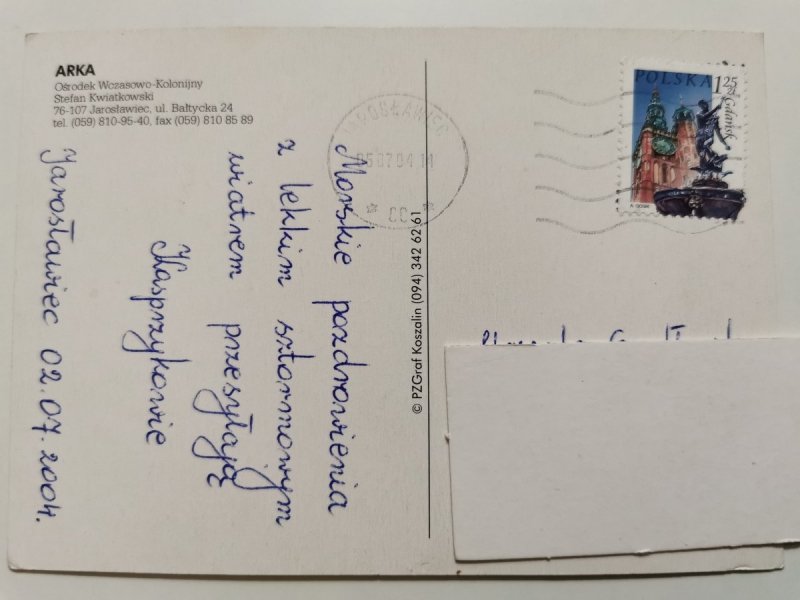 ARKA
Ośrodek Wczasowo-Kolonijny
Stefan Kwiatkowski
76-107 Jarosławiec, ul. Bałtycka 24
tel. (059) 810-95-40, fax (059) 810 85 89
Morskie pozdrowienia
z lekkim sztormowym
wiatrem przesyłają
Kasprzykowie
Jarosławiec 02.07.2004.
© PZGraf Koszalin (094) 342 62 61
JAROSŁAWIEC
05.07.04.14
CC
POLSKA
1,25
zł
Gdańsk